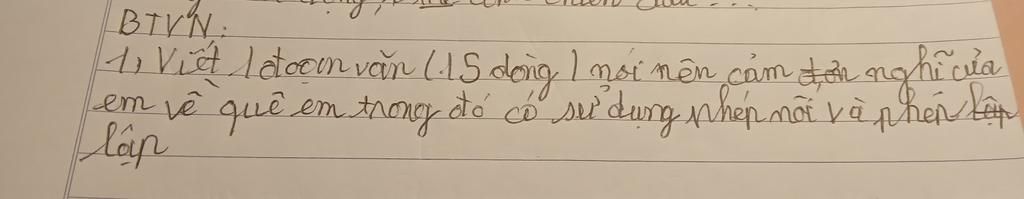 BTVN:
1, Viết 1 đoạn văn (15 dòng) nói nên cảm nghĩ của
em về quê em trong đó có sử dụng phép nối và phép
lặp